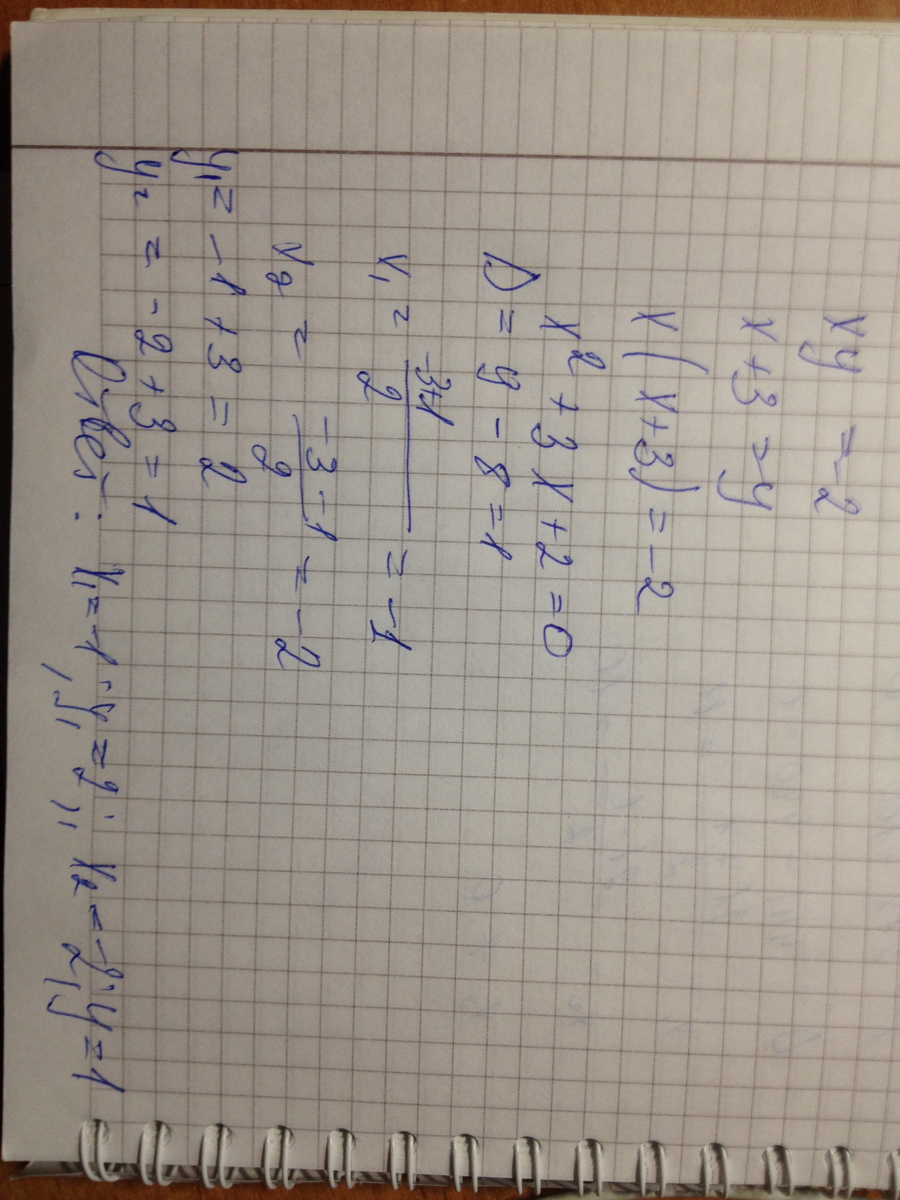 xy = -2
x + 3 = y
x(x+3) = -2
x² + 3x + 2 = 0
D = 9 - 8 = 1
x₁ = (-3+1)/2 = -1
x₂ = (-3-1)/2 = -2
y₁ = -1 + 3 = 2
y₂ = -2 + 3 = 1
Ответ: x₁ = -1, y₁ = 2; x₂ = -2, y = 1